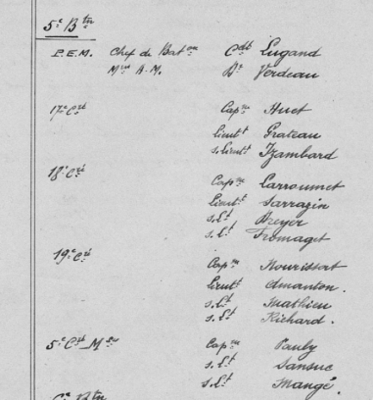 5e Bon
P.E.M. Chef de Baton Cdt Lugand
Min A.M. Dr Verdeau
17e Cie Capne Huet
Lieutt Grateau
s.Lieutt Izambard
18e Cie Capne Larroumet
Lieutt Sarrazin
s.Lt Breyer
s.Lt Fromaget
19e Cie Capne Nourissort
Lieutt Amanton.
s.Lt Mathieu
s.Lt Richard.
5e Cie Mses Capne Pauly
s.Lt Sansuc
s.Lt Mangé.
6e Bon